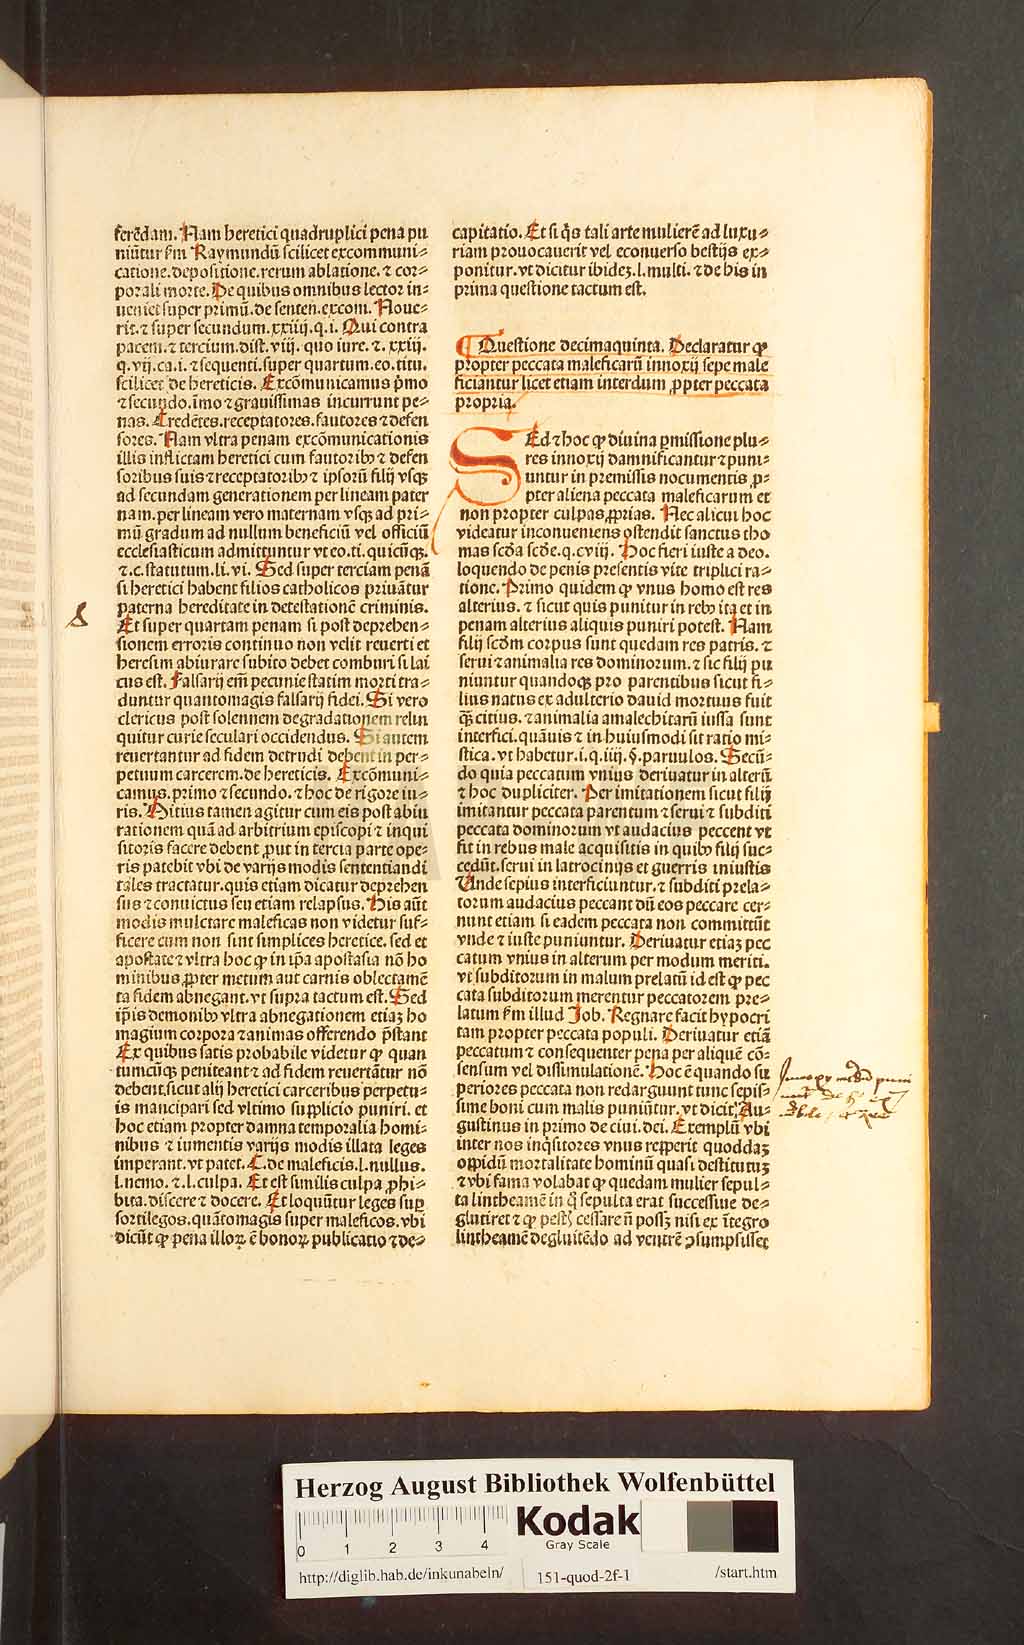 ferēdam. Nam heretici quadruplici pena pu
niūtur ẜm Raymundū scilicet excommuni⸗
catione.depositione.rerum ablatione. ⁊ cor⸗
porali morte. De quibus omnibus lector in⸗
ueniet super primū.de senten.excom. Noue⸗
rit.⁊ super secundum.xxiiij.q.i. Qui contra
pacem.⁊ tercium.dist.viij. quo iure.⁊.xxiij.
q.vij.ca.i. ⁊sequenti.super quartum.eo.titu.
scilicet de hereticis. Excōmunicamus p̄mo
⁊secundo.īmo ⁊grauissimas incurrunt pe⸗
nas. Credētes.receptatores.fautores ⁊defen
sores. Nam vltra penam excōmunicationis
illis inflictam heretici cum fautoribꝰ ⁊ defen
soribus suis ⁊receptatoribꝰ ⁊ ipsorū filij vsqꝫ
ad secundam generationem per lineam pater
nam.per lineam vero maternam vsqꝫ ad pri⸗
mū gradum ad nullum beneficiū vel officiū
ecclesiasticum admittuntur vt eo.ti.quicūqꝫ.
⁊.c.statutum.li.vi. Sed super terciam penā
si heretici habent filios catholicos priuātur
paterna hereditate in detestationē criminis.
Et super quartam penam si post deprehen⸗
sionem erroris continuo non velit reuerti et
heresim abiurare subito debet comburi si lai
cus est. Falsarij em̄ pecunie statim morti tra⸗
duntur quantomagis falsarij fidei. Si vero
clericus post solennem degradationem relin
quitur curie seculari occidendus. Si autem
reuertantur ad fidem detrudi debent in per⸗
petuum carcerem.de hereticis. Excōmuni⸗
camus.primo ⁊secundo.⁊hoc de rigore iu⸗
ris. Mitius tamen agitur cum eis post abiu
rationem quā ad arbitrium episcopi ⁊ inqui
sitoris facere debent ꝓut in tercia parte ope⸗
ris patebit vbi de varijs modis sententiandi
tales tractatur.quis etiam dicatur deprehen
sus ⁊conuictus seu etiam relapsus. His aūt
modis mulctare maleficas non videtur suf⸗
ficere cum non sint simplices heretice. sed et
apostate ⁊vltra hoc ꝙ in ip̄a apostasia nō ho
minibus ꝓpter metum aut carnis oblectamē
ta fidem abnegant.vt supra tactum est. Sed
ip̄is demonibꝰ vltra abnegationem etiaꝫ ho
magium corpora ⁊animas offerendo p̄stant
Ex quibus satis probabile videtur ꝙ quan
tumcūqꝫ peniteant ⁊ad fidem reuertātur nō
debent.sicut alij heretici carceribus perpetu⸗
is mancipari sed vltimo supplicio puniri. et
hoc etiam propter damna temporalia homi⸗
nibus ⁊ iumentis varijs modis illata leges
imperant.vt patet. C.de maleficis.l.nullus.
l.nemo.⁊.l.culpa. Et est similis culpa ꝓhi⸗
bita.discere ⁊ docere. Et loquūtur leges suꝑ
sortilegos.quātomagis super maleficos.vbi
dicūt ꝙ pena illoꝝ ē bonoꝝ publicatio ⁊de⸗
S
capitatio. Et si q̄s tali arte mulierē ad luxu⸗
riam prouocauerit vel econuerso bestijs ex⸗
ponitur.vt dicitur ibideꝫ.l.multi.⁊de his in
prima questione tactum est.
¶ Questione decimaquinta. Declaratur ꝙ
propter peccata maleficarū innoxij sepe male
ficiantur licet etiam interdum ꝓpter peccata
propria.
SEd ⁊hoc ꝙ diuina ꝑmissione plu⸗
res innoxij damnificantur ⁊puni⸗
untur in premissis nocumentis ꝓ⸗
pter aliena peccata maleficarum et
non propter culpas ꝓprias. Nec alicui hoc
videatur inconueniens ostendit sanctus tho
mas scd̄a scd̄e.q.cviij. Hoc fieri iuste a deo.
loquendo de penis presentis vite triplici ra⸗
tione. Primo quidem ꝙ vnus homo est res
alterius.⁊ sicut quis punitur in rebꝰ ita et in
penam alterius aliquis puniri potest. Nam
filij scd̄m corpus sunt quedam res patris.⁊
serui ⁊animalia res dominorum.⁊ sic filij pu
niuntur quandoqꝫ pro parentibus sicut fi⸗
lius natus ex adulterio dauid mortuus fuit
qꝫ̄ citius.⁊animalia amalechitarū iussa sunt
interfici.quāuis ⁊ in huiusmodi sit ratio mi⸗
stica.vt habetur.i.q.iiij.§.paruulos. Secū⸗
do quia peccatum vnius deriuatur in alterū
⁊ hoc dupliciter. Per imitationem sicut filij
imitantur peccata parentum ⁊serui ⁊ subditi
peccata dominorum vt audacius peccent vt
fit in rebus male acquisitis in quibꝰ filij suc⸗
cedūt.serui in latrocinijs et guerris iniustis
Unde sepius interficiuntur.⁊ subditi prela⸗
torum audacius peccant dū eos peccare cer⸗
nunt etiam si eadem peccata non committūt
vnde ⁊ iuste puniuntur. Deriuatur etiaꝫ pec
catum vnius in alterum per modum meriti.
vt subditorum in malum prelatū id est ꝙ pec
cata subditorum merentur peccatorem pre⸗
latum ẜm illud Job. Regnare facit hypocri
tam propter peccata populi. Deriuatur etiā
peccatum ⁊ consequenter pena per aliquē cō⸗
sensum vel dissimulationē. Hoc ē quando su
periores peccata non redarguunt tunc sepis⸗
sime boni cum malis puniūtur.vt dicit Au⸗
gustinus in primo de ciui.dei. Exemplū vbi
inter nos inq̄sitores vnus reꝑperit quoddaꝫ
oppidū mortalitate hominū quasi destitutuꝫ
⁊vbi fama volabat ꝙ quedam mulier sepul⸗
ta lintheamē in q̄ sepulta erat successiue de⸗
glutiret ⁊ ꝙ pestꝭ cessare n̄ possꝫ nisi ex ītegro
lintheamē degluitēdo ad ventrē ꝯsumpsisset
Herzog August Bibliothek Wolfenbüttel
0 1 2 3 4
Kodak
Gray Scale
http://diglib.hab.de/inkunabeln/ 151-quod-2f-1 /start.htm